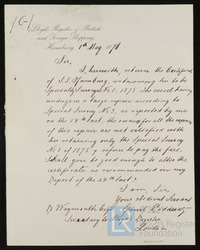 Lloyds Register of British
and Foreign Shipping,
Hamburg 1st May 1876
Sir,
I herewith return the Certificate
of S.S. Hamburg, retaining her to be
Specially Surveyed No 1. 1875. The vessel having
undergone a large repair according to
Special Survey No 2, as reported by me
on the 24th last, the owners for all the expense
of this repair are not satisfied with
her retaining only the Special Survey
No 1 of 1875 & refuse to pay the fees.
Shall you be good enough to alter the
certificate as recommended in my
Report of the 24th last?
I am, Sir
Your obedient Servant
Waymouth Esqre
Secretary to Lloyds Register
London